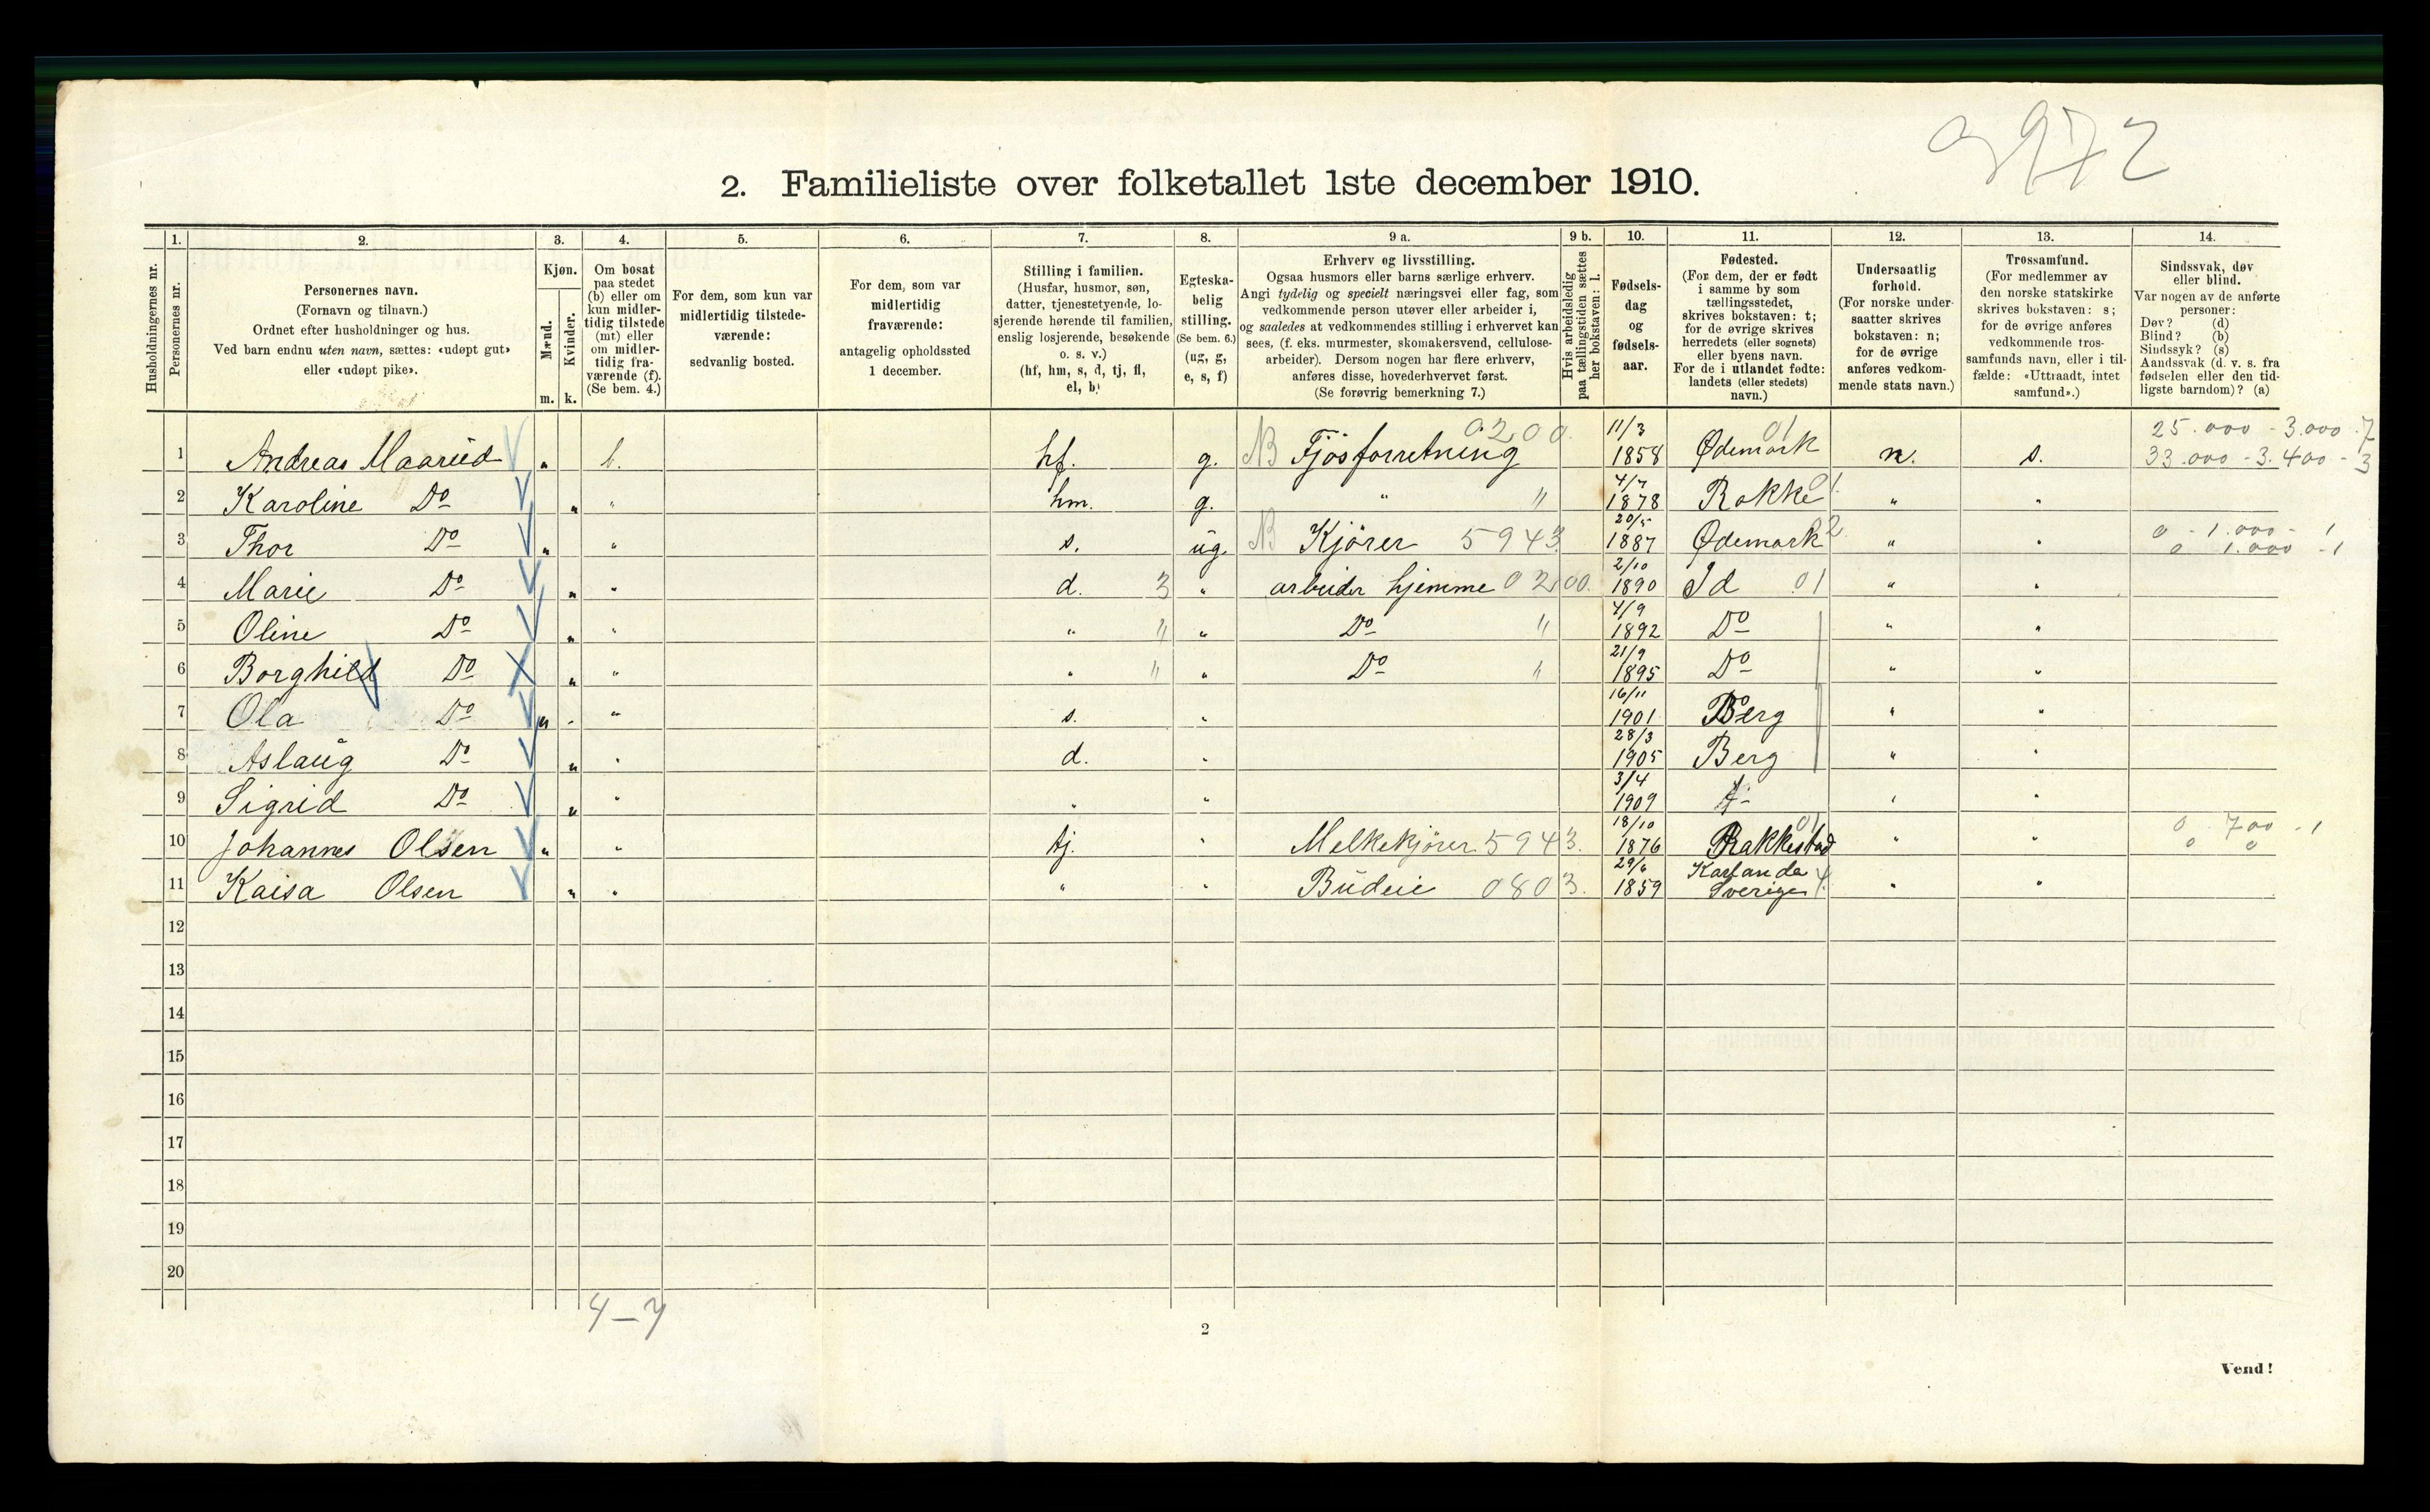 9972
2. Familieliste over folketallet 1ste december 1910.
Husholdningernes nr.
1. Personernes nr.
2. Personernes navn.
(Fornavn og tilnavn.)
Ordnet efter husholdninger og hus.
Ved barn endnu uten navn, sættes: «udøpt gut»
eller «udøpt pike».
3. Kjøn.
Mænd. m.
Kvinder. k.
4. Om bosat
paa stedet
(b) eller om
kun midler-
tidig tilstede
(mt) eller
om midler-
tidig fra-
værende (f).
(Se bem. 4.)
5. For dem, som kun var
midlertidig tilstede-
værende:
sedvanlig bosted.
6. For dem, som var
midlertidig
fraværende:
antagelig opholdssted
1 december.
7. Stilling i familien.
(Husfar, husmor, søn,
datter, tjenestetyende, lo-
sjerende hørende til familien,
enslig losjerende, besøkende
o. s. v.)
(hf, hm, s, d, tj, fl,
el, b)
8. Egteska-
belig
stilling.
(Se bem. 6.)
(ug, g,
e, s, f)
9 a. Erhverv og livsstilling.
Ogsaa husmors eller barns særlige erhverv.
Angi tydelig og specielt næringsvei eller fag, som
vedkommende person utøver eller arbeider i,
og saaledes at vedkommendes stilling i erhvervet kan
sees, (f. eks. murmester, skomakersvend, cellulose-
arbeider). Dersom nogen har flere erhverv,
anføres disse, hovederhvervet først.
(Se forøvrig bemerkning 7.)
9 b. Hvis arbeidsledig
paa tællingstiden sættes
her bokstaven: l.
10. Fødsels-
dag
og
fødsels-
aar.
11. Fødested.
(For dem, der er født
i samme by som
tællingsstedet,
skrives bokstaven: t;
for de øvrige skrives
herredets (eller sognets)
eller byens navn.
For de i utlandet fødte:
landets (eller stedets)
navn.)
12. Undersaatlig
forhold.
(For norske under-
saatter skrives
bokstaven: n;
for de øvrige
anføres vedkom-
mende stats navn.)
13. Trossamfund.
(For medlemmer av
den norske statskirke
skrives bokstaven: s;
for de øvrige anføres
vedkommende tros-
samfunds navn, eller i til-
fælde: «Uttraadt, intet
samfund».)
14. Sindssvak, døv
eller blind.
Var nogen av de anførte
personer:
Døv? (d)
Blind? (b)
Sindssyk? (s)
Aandssvak (d. v. s. fra
fødselen eller den tid-
ligste barndom)? (a)
1 Andreas Maarud " b. hf. g. NB Fjøsforretning 0200. 11/3 1858 Ødemark 01 n. s. 25.000 - 3.000 - 7 33.000 - 3.400 - 3
2 Karoline Do " " hm. g. " " 4/7 1878 Rokke 01 " "
3 Thor Do " " s. ug. NB Kjører 5943 20/5 1887 Ødemark 22 " " 0 - 1.000 - 1 0 1.000 - 1
4 Marie Do " " d. 3 " arbeider hjemme 0200. 2/10 1890 Id 01 " "
5 Oline Do " " " " " Do " 4/9 1892 Do " "
6 Borghild Do " " " " " Do " 21/9 1895 Do " "
7 Ola Do " " s. " 16/11 1901 Berg " "
8 Aslaug Do " " d. " 28/3 1905 Berg " "
9 Sigrid Do " " " " 3/4 1909 " "
10 Johannes Olsen " " tj. " Melkekjører 5943. 18/10 1876 Rakkestad 01 " " 0 700 - 1 0 0
11 Kaisa Olsen " " " " Budeie 0803. 29/6 1859 Karlanda Sverige 4 " "
12
13
14
15
16
17
18
19
20
4-7
2
Vend!